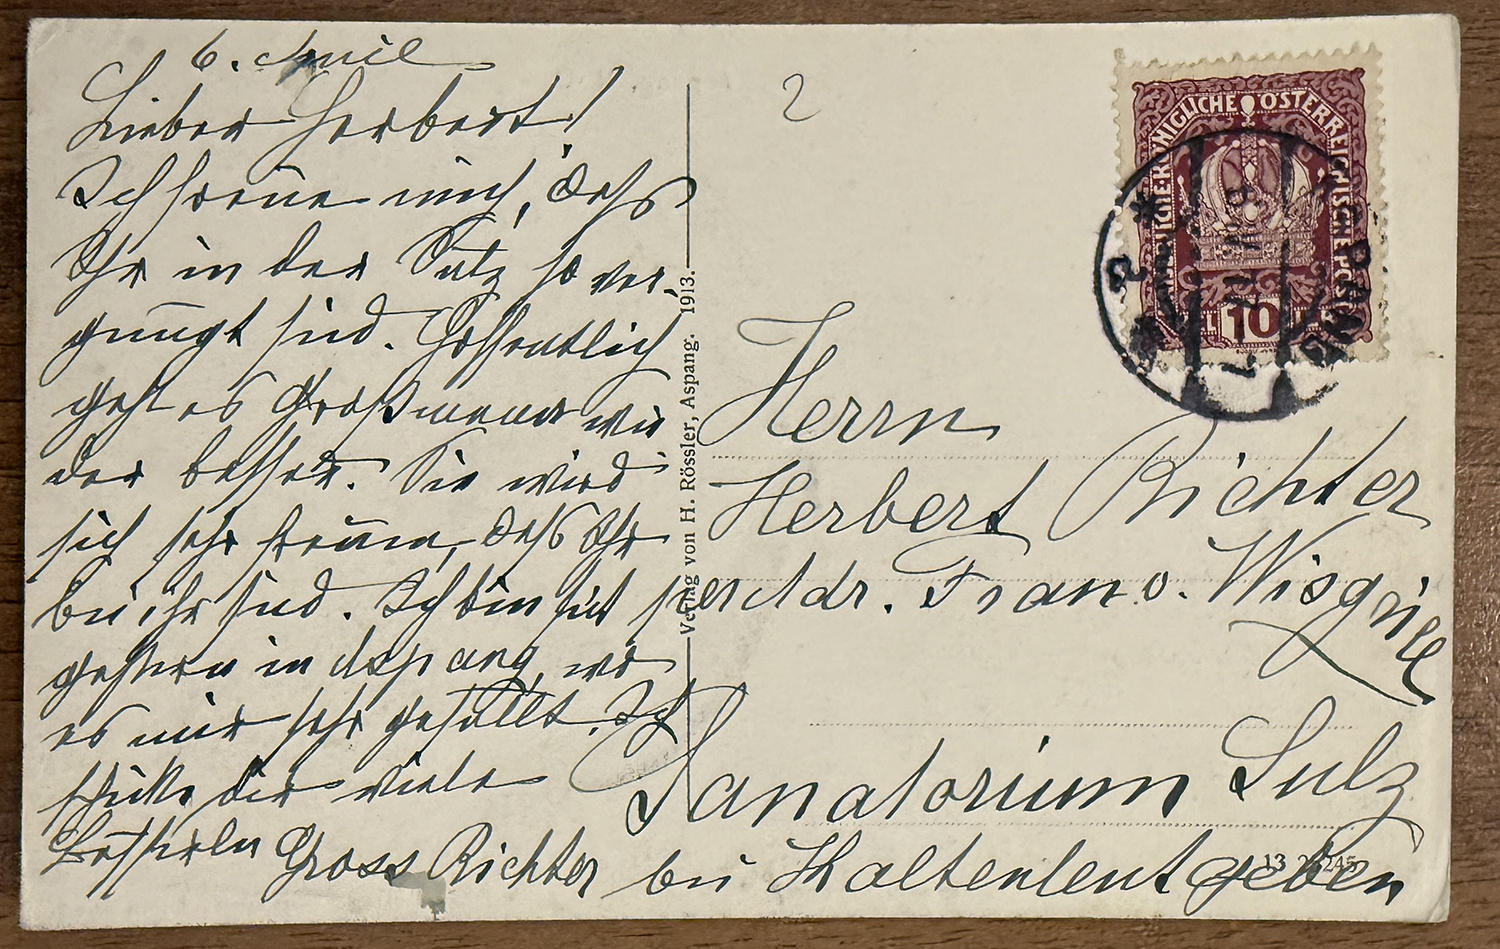 6. April
Lieber Herbert!
Ich freue mich, daß
Ihr in der Sulz so ver-
gnügt seid. Hoffentlich
geht es Großmama wie
der besser. Sie wird
sich sehr freuen, daß Ihr
bei ihr seid. Ich bin seit
gestern in Aspang, wo
es mir sehr gefällt. Ich
schicke dir viele
Gross Richter
Verlag von H. Rössler, Aspang. 1913.
2
KAISERLICHE KÖNIGLICHE ÖSTERREICHISCHE POST
10
ASPANG
Herrn
Herbert Richter
per Adr. Frau v. Wisgrill
Sanatorium Sulz
bei Kaltenleutgeben